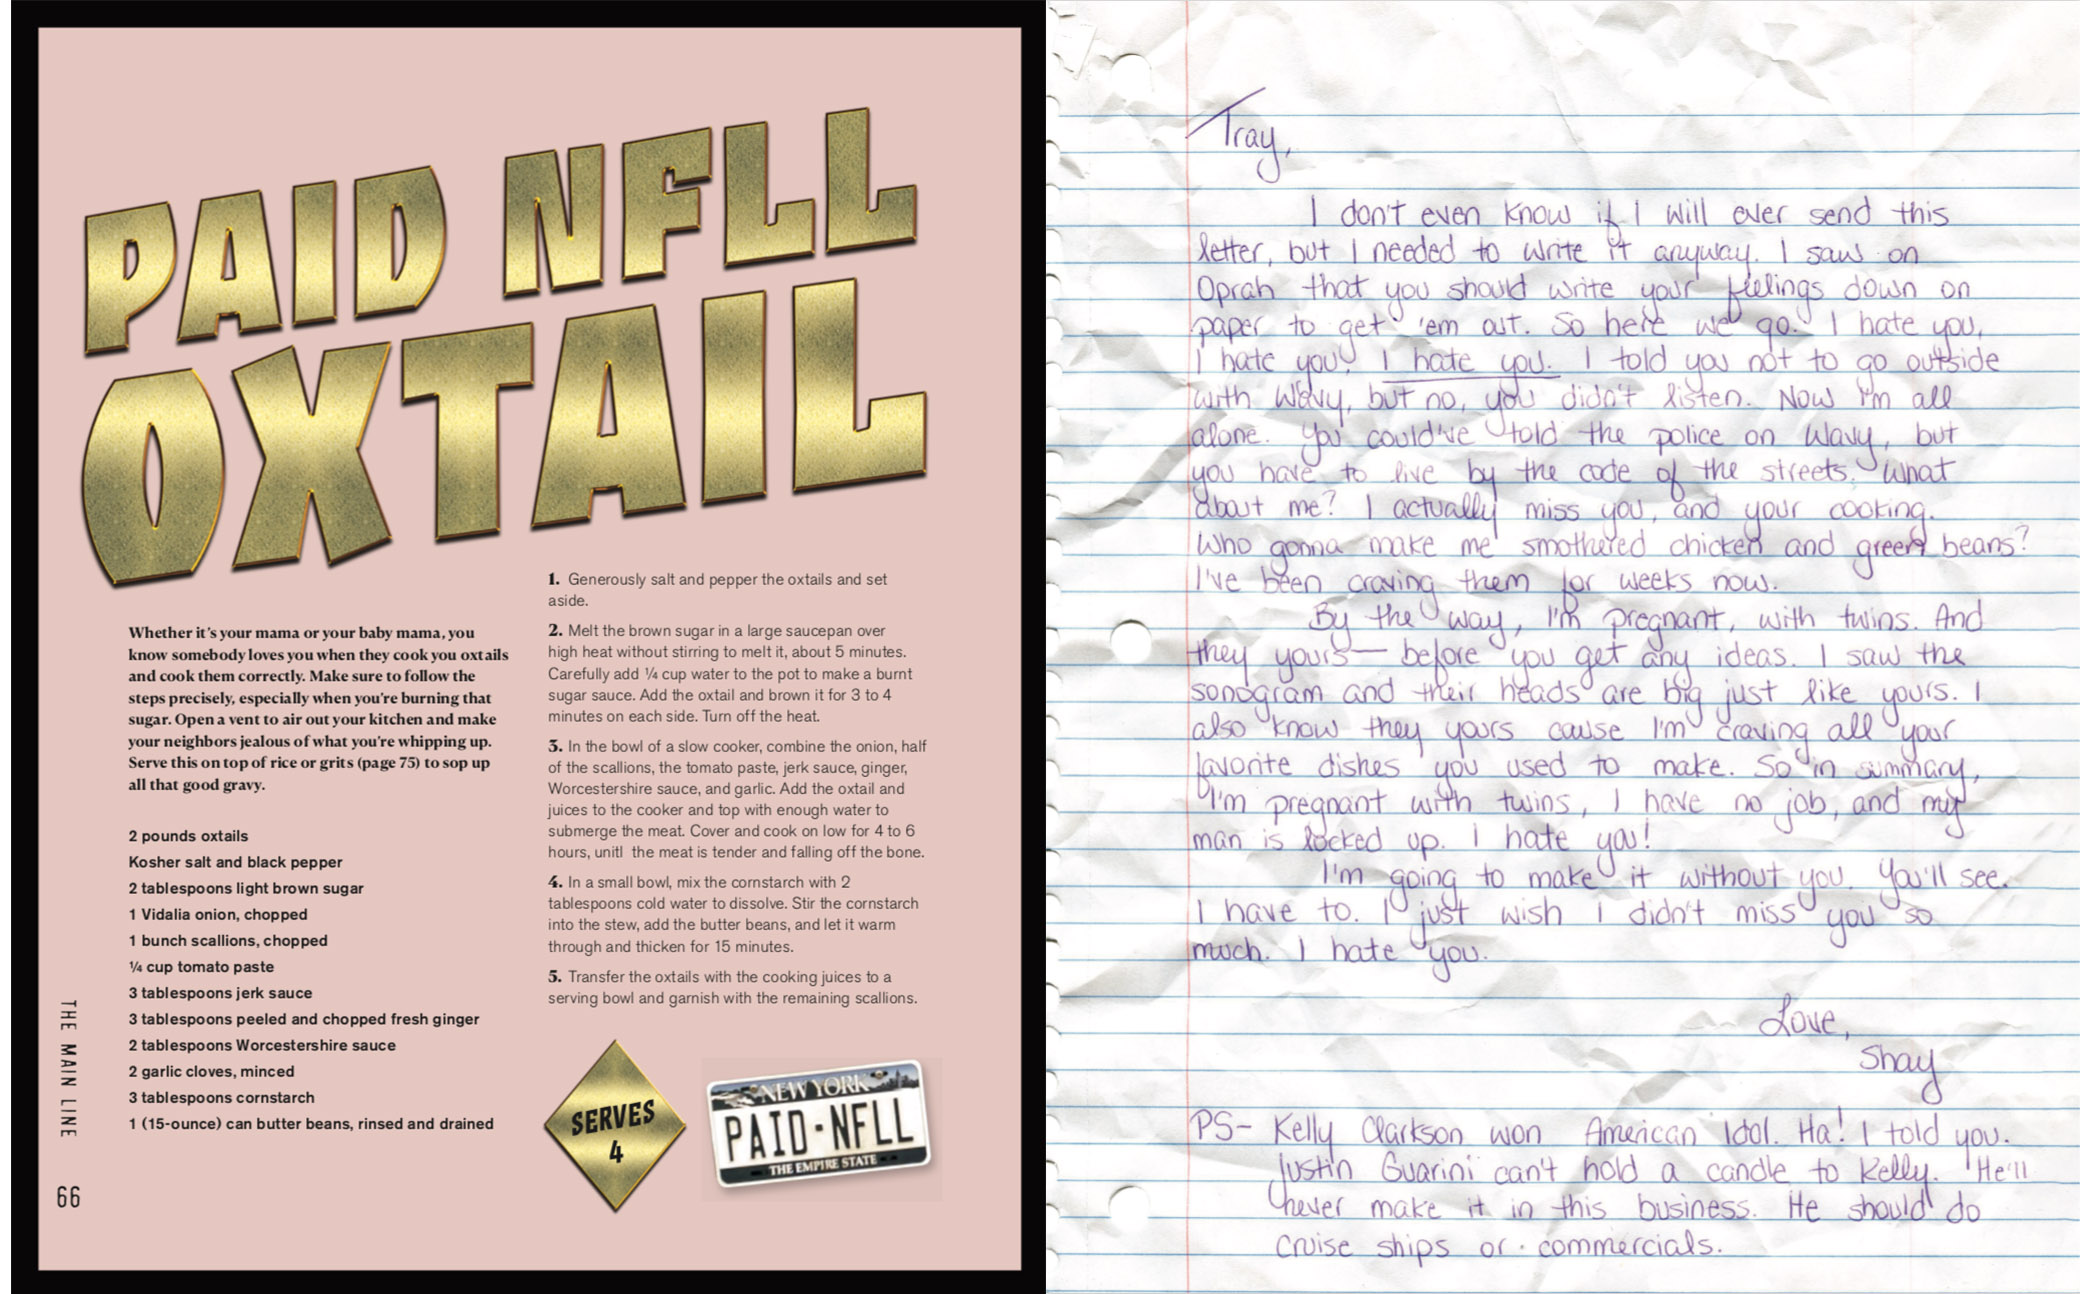 PAID NFLL
OXTAIL
Whether it's your mama or your baby mama, you
know somebody loves you when they cook you oxtails
and cook them correctly. Make sure to follow the
steps precisely, especially when you're burning that
sugar. Open a vent to air out your kitchen and make
your neighbors jealous of what you're whipping up.
Serve this on top of rice or grits (page 75) to sop up
all that good gravy.
2 pounds oxtails
Kosher salt and black pepper
2 tablespoons light brown sugar
1 Vidalia onion, chopped
1 bunch scallions, chopped
¼ cup tomato paste
3 tablespoons jerk sauce
3 tablespoons peeled and chopped fresh ginger
2 tablespoons Worcestershire sauce
2 garlic cloves, minced
3 tablespoons cornstarch
1 (15-ounce) can butter beans, rinsed and drained
1. Generously salt and pepper the oxtails and set
aside.
2. Melt the brown sugar in a large saucepan over
high heat without stirring to melt it, about 5 minutes.
Carefully add ¼ cup water to the pot to make a burnt
sugar sauce. Add the oxtail and brown it for 3 to 4
minutes on each side. Turn off the heat.
3. In the bowl of a slow cooker, combine the onion, half
of the scallions, the tomato paste, jerk sauce, ginger,
Worcestershire sauce, and garlic. Add the oxtail and
juices to the cooker and top with enough water to
submerge the meat. Cover and cook on low for 4 to 6
hours, unitl the meat is tender and falling off the bone.
4. In a small bowl, mix the cornstarch with 2
tablespoons cold water to dissolve. Stir the cornstarch
into the stew, add the butter beans, and let it warm
through and thicken for 15 minutes.
5. Transfer the oxtails with the cooking juices to a
serving bowl and garnish with the remaining scallions.
SERVES
4
NEW YORK
PAID·NFLL
THE EMPIRE STATE
THE MAIN LINE
66
Tray,
I don't even know if I will ever send this
letter, but I needed to write it anyway. I saw on
Oprah that you should write your feelings down on
paper to get 'em out. So here we go. I hate you,
I hate you, I hate you. I told you not to go outside
with Wavy, but no, you didn't listen. Now I'm all
alone. You could've told the police on Wavy, but
you have to live by the code of the streets. What
about me? I actually miss you, and your cooking.
Who gonna make me smothered chicken and green beans?
I've been craving them for weeks now.
By the way, I'm pregnant, with twins. And
they yours— before you get any ideas. I saw the
sonogram and their heads are big just like yours. I
also know they yours cause I'm craving all your
favorite dishes you used to make. So in summary,
I'm pregnant with twins, I have no job, and my
man is locked up. I hate you!
I'm going to make it without you. You'll see.
I have to. I just wish I didn't miss you so
much. I hate you.
Love,
Shay
PS- Kelly Clarkson won American Idol. Ha! I told you.
Justin Guarini can't hold a candle to Kelly. He'll
never make it in this business. He should do
cruise ships or commercials.